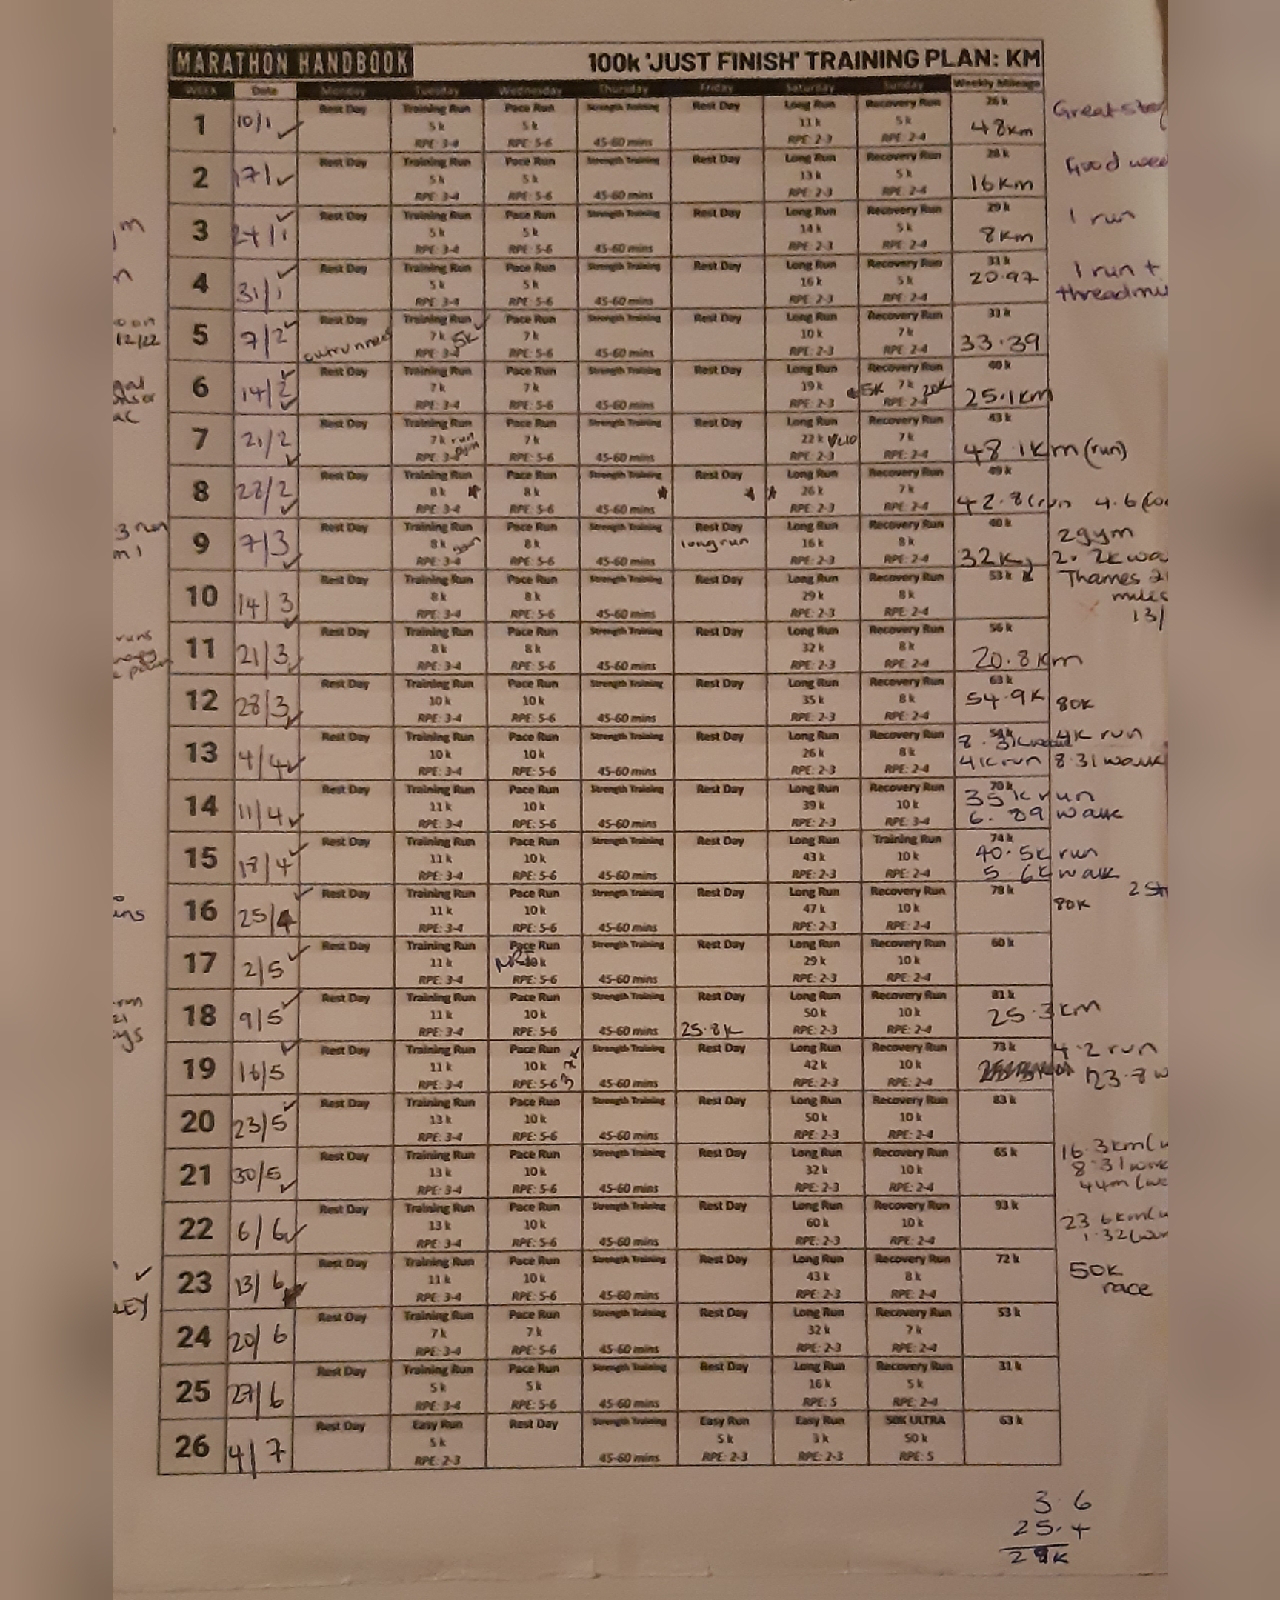 MARATHON HANDBOOK 100k 'JUST FINISH' TRAINING PLAN: KM
WEEK Date Monday Tuesday Wednesday Thursday Friday Saturday Sunday Weekly Mileage
Rest Day Training Run Pace Run Strength Training Rest Day Long Run Recovery Run 26 k
1 10/1 5 k 5 k 11 k 5 k 48km Great
RPE: 3-4 RPE: 5-6 45-60 mins RPE: 2-3 RPE: 2-4
Rest Day Training Run Pace Run Strength Training Rest Day Long Run Recovery Run 28 k
2 17/1 5 k 5 k 13 k 5 k 16km Good
RPE: 3-4 RPE: 5-6 45-60 mins RPE: 2-3 RPE: 2-4
Rest Day Training Run Pace Run Strength Training Rest Day Long Run Recovery Run 29 k
3 24/1 5 k 5 k 14 k 5 k 8km 1 run
RPE: 3-4 RPE: 5-6 45-60 mins RPE: 2-3 RPE: 2-4
Rest Day Training Run Pace Run Strength Training Rest Day Long Run Recovery Run 31 k
4 31/1 5 k 5 k 16 k 5 k 20.97 1 run +
RPE: 3-4 RPE: 5-6 45-60 mins RPE: 2-3 RPE: 2-4
Rest Day Training Run Pace Run Strength Training Rest Day Long Run Recovery Run 33 k
12/22 5 7/2 7 k 5k 7 k 10 k 7 k 33.39
RPE: 3-4 RPE: 5-6 45-60 mins RPE: 2-3 RPE: 2-4
Rest Day Training Run Pace Run Strength Training Rest Day Long Run Recovery Run 40 k
6 14/2 7 k 7 k 19 k 5K 7 k 20k 25.1km
RPE: 3-4 RPE: 5-6 45-60 mins RPE: 2-3 RPE: 2-4
Rest Day Training Run Pace Run Strength Training Rest Day Long Run Recovery Run 43 k
7 21/2 7 k run 7 k 22 k 7 k 48.1km (run)
RPE: 3-4 RPE: 5-6 45-60 mins RPE: 2-3 RPE: 2-4
Rest Day Training Run Pace Run Strength Training Rest Day Long Run Recovery Run 49 k
8 28/2 8 k 8 k 26 k 7 k 42.8 (run 4.6
RPE: 3-4 RPE: 5-6 45-60 mins RPE: 2-3 RPE: 2-4
3 run Rest Day Training Run Pace Run Strength Training Rest Day Long Run Recovery Run 40 k 2gym
9 7/3 8 k 8 k long run 16 k 8 k 32k 2.2k
RPE: 3-4 RPE: 5-6 45-60 mins RPE: 2-3 RPE: 2-4
Rest Day Training Run Pace Run Strength Training Rest Day Long Run Recovery Run 53 k Thames
10 14/3 8 k 8 k 29 k 8 k miles
RPE: 3-4 RPE: 5-6 45-60 mins RPE: 2-3 RPE: 2-4 13/
runs Rest Day Training Run Pace Run Strength Training Rest Day Long Run Recovery Run 56 k
11 21/3 8 k 8 k 32 k 8 k 20.8km
RPE: 3-4 RPE: 5-6 45-60 mins RPE: 2-3 RPE: 2-4
Rest Day Training Run Pace Run Strength Training Rest Day Long Run Recovery Run 63 k
12 28/3 10 k 10 k 35 k 8 k 54.9k 80k
RPE: 3-4 RPE: 5-6 45-60 mins RPE: 2-3 RPE: 2-4
Rest Day Training Run Pace Run Strength Training Rest Day Long Run Recovery Run 4k run
13 4/4 10 k 10 k 26 k 8 k
RPE: 3-4 RPE: 5-6 45-60 mins RPE: 2-3 RPE: 2-4 run 8.31 walk
Rest Day Training Run Pace Run Strength Training Rest Day Long Run Recovery Run 70 k
14 11/4 11 k 10 k 39 k 10 k 35k run
RPE: 3-4 RPE: 5-6 45-60 mins RPE: 2-3 RPE: 3-4 6.89 walk
Rest Day Training Run Pace Run Strength Training Rest Day Long Run Training Run 74 k
15 18/4 11 k 10 k 43 k 10 k 40.5k run
RPE: 3-4 RPE: 5-6 45-60 mins RPE: 2-3 RPE: 2-4 5.6k walk
Rest Day Training Run Pace Run Strength Training Rest Day Long Run Recovery Run 78 k
16 25/4 11 k 10 k 47 k 10 k 80k
RPE: 3-4 RPE: 5-6 45-60 mins RPE: 2-3 RPE: 2-4
Rest Day Training Run Pace Run Strength Training Rest Day Long Run Recovery Run 60 k
17 2/5 11 k 29 k 10 k
RPE: 3-4 RPE: 5-6 45-60 mins RPE: 2-3 RPE: 2-4
Rest Day Training Run Pace Run Strength Training Rest Day Long Run Recovery Run 81 k
18 9/5 11 k 10 k 50 k 10 k 25.3km
RPE: 3-4 RPE: 5-6 45-60 mins 25.8k RPE: 2-3 RPE: 2-4
Rest Day Training Run Pace Run Strength Training Rest Day Long Run Recovery Run 73 k 4.2 run
19 16/5 11 k 10 k 42 k 10 k 23.8
RPE: 3-4 RPE: 5-6 45-60 mins RPE: 2-3 RPE: 2-4
Rest Day Training Run Pace Run Strength Training Rest Day Long Run Recovery Run 83 k
20 23/5 13 k 10 k 50 k 10 k
RPE: 3-4 RPE: 5-6 45-60 mins RPE: 2-3 RPE: 2-4
Rest Day Training Run Pace Run Strength Training Rest Day Long Run Recovery Run 65 k 16.3km
21 30/5 13 k 10 k 32 k 10 k 8.31
RPE: 3-4 RPE: 5-6 45-60 mins RPE: 2-3 RPE: 2-4
Rest Day Training Run Pace Run Strength Training Rest Day Long Run Recovery Run 93 k
22 6/6 13 k 10 k 60 k 10 k 23.6km
RPE: 3-4 RPE: 5-6 45-60 mins RPE: 2-3 RPE: 2-4 1.32
Rest Day Training Run Pace Run Strength Training Rest Day Long Run Recovery Run 72 k 50k
23 13/6 11 k 10 k 43 k 8 k race
RPE: 3-4 RPE: 5-6 45-60 mins RPE: 2-3 RPE: 2-4
Rest Day Training Run Pace Run Strength Training Rest Day Long Run Recovery Run 53 k
24 20/6 7 k 7 k 32 k 7 k
RPE: 3-4 RPE: 5-6 45-60 mins RPE: 2-3 RPE: 2-4
Rest Day Training Run Pace Run Strength Training Rest Day Long Run Recovery Run 31 k
25 27/6 5 k 5 k 16 k 5 k
RPE: 3-4 RPE: 5-6 45-60 mins RPE: 5 RPE: 2-4
Rest Day Easy Run Rest Day Strength Training Easy Run Easy Run 50K ULTRA 63 k
26 4/7 5 k 5 k 3 k 50 k
RPE: 2-3 45-60 mins RPE: 2-3 RPE: 2-3 RPE: 5
3.6
25.4
29k